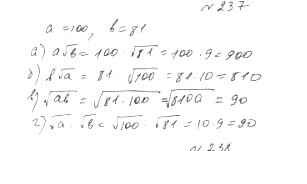 № 237
a = 100, b = 81
а) a√b = 100 · √81 = 100 · 9 = 900
б) b√a = 81 √100 = 81 · 10 = 810
в) √ab = √81 · 100 = √8100 = 90
г) √a · √b = √100 · √81 = 10 · 9 = 90
№ 238